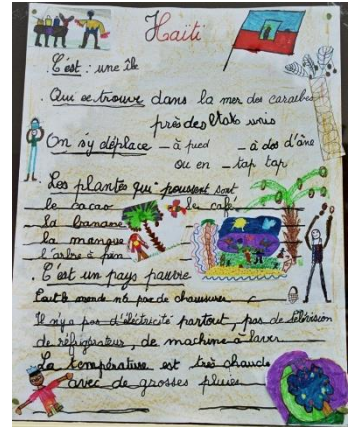 Haïti
. C'est : une île
Qui se trouve dans la mer des caraïbes
près des Etats unis
On s'y déplace - à pied - à dos d'âne
ou en - tap tap
. Les plantes qui poussent sont
le cacao le café
la banane
la mangue
l'arbre à pain
. C'est un pays pauvre
Tout le monde n'a pas de chaussures
Il n'y a pas d'éléctricité partout, pas de télévision
de réfrigérateur, de machine à laver
La température est très chaude
avec de grosses pluies